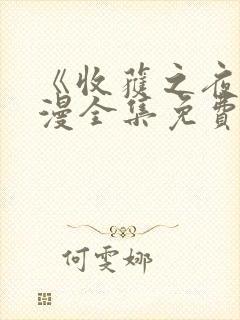 《收获之夜
漫全集免費
何雯娜